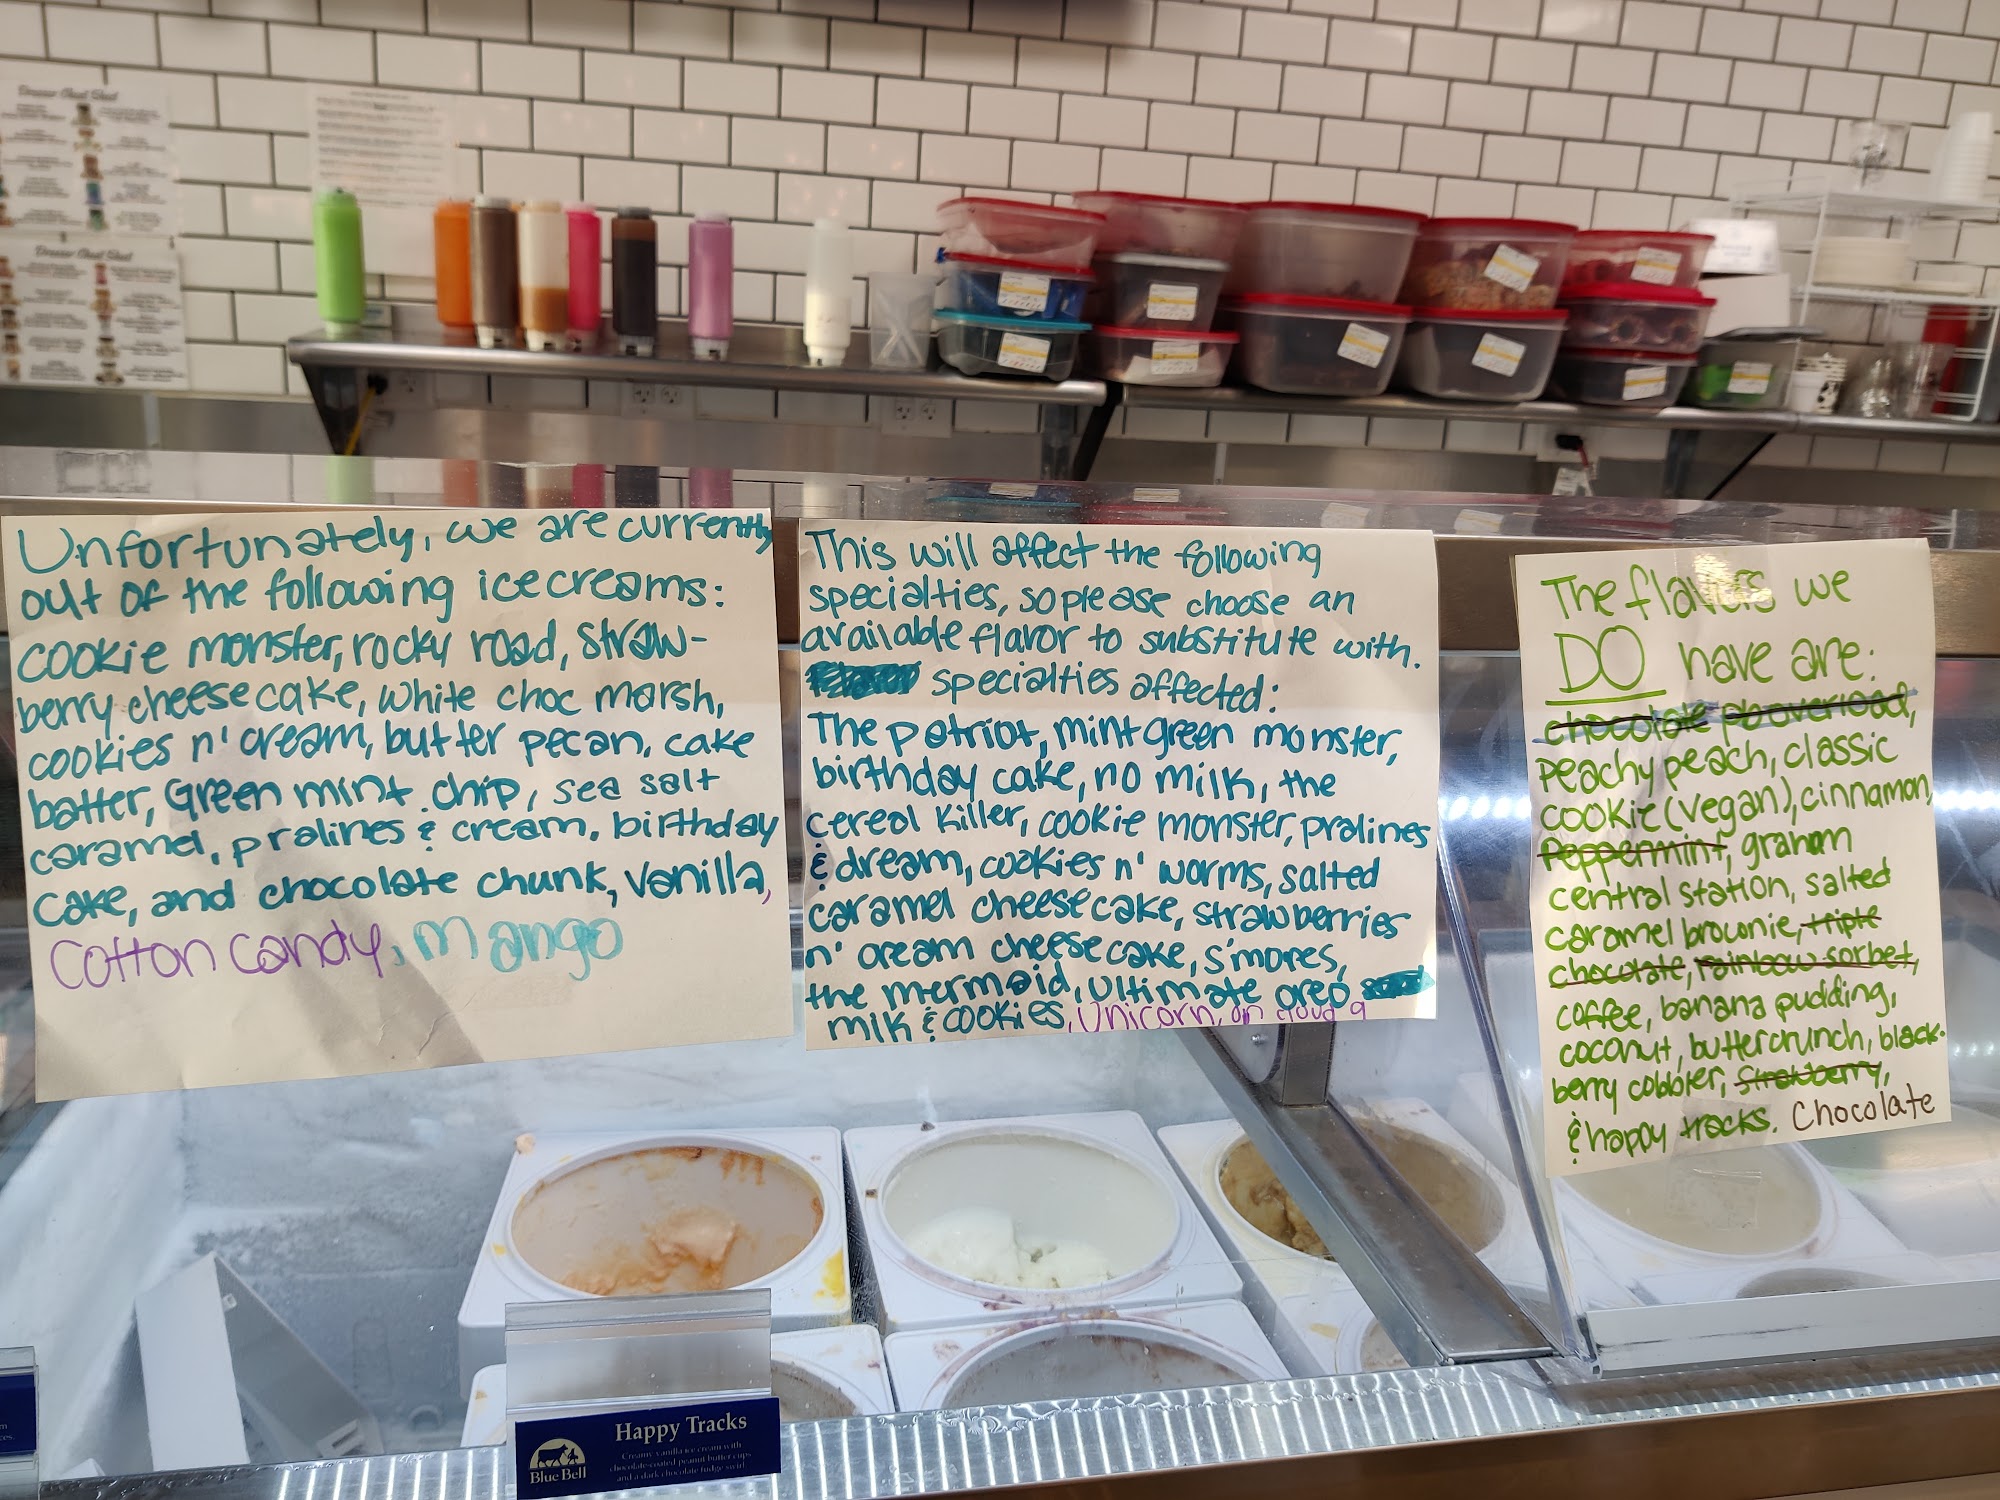 Dreamer Cheat Sheet
Dreamer Cheat Sheet
Unfortunately, we are currently
out of the following icecreams:
cookie monster, rocky road, straw-
berry cheesecake, white choc marsh,
cookies n' cream, butter pecan, cake
batter, Green mint chip, sea salt
caramel, pralines & cream, birthday
cake, and chocolate chunk, vanilla,
Cotton Candy, Mango
This will affect the following
specialties, so please choose an
available flavor to substitute with.
specialties affected:
The patriot, mint green monster,
birthday cake, no milk, the
cereal killer, cookie monster, pralines
& dream, cookies n' worms, salted
caramel cheesecake, strawberries
n' cream cheesecake, s'mores,
the mermaid, ultimate oreo
milk & cookies, Unicorn, on cloud 9
The flavors we
DO have are:
chocolate pb overload,
peachy peach, classic
cookie (vegan), cinnamon,
peppermint, graham
central station, salted
caramel brownie, triple
chocolate, rainbow sorbet,
coffee, banana pudding,
coconut, buttercrunch, black-
berry cobbler, strawberry,
& happy tracks. Chocolate
Happy Tracks
Creamy vanilla ice cream with
chocolate-coated peanut butter cups
and a dark chocolate fudge swirl
Blue Bell